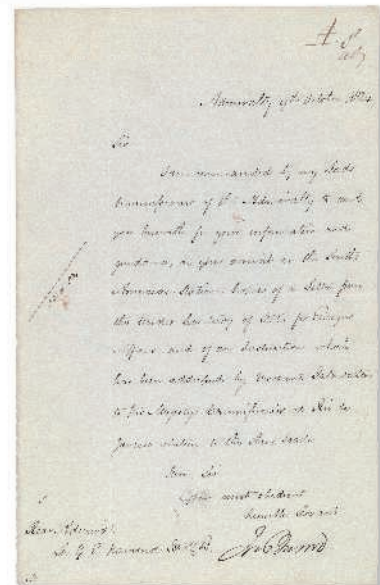 Admiralty 9th October 1834
Sir
I am commanded by my Lords
Commissioners of the Admiralty to send
you herewith for your information and
guidance, on your arrival on the South
American Station copies of a Letter from
the Under Secretary of State for Foreign
Affairs and of an Instruction which
has been addressed by Viscount Palmerston
to His Majesty's Commissioners at Rio de
Janeiro relative to the Slave trade
I am Sir
Your most obedient
humble Servant
Rear Admiral
Sir G E Hamond